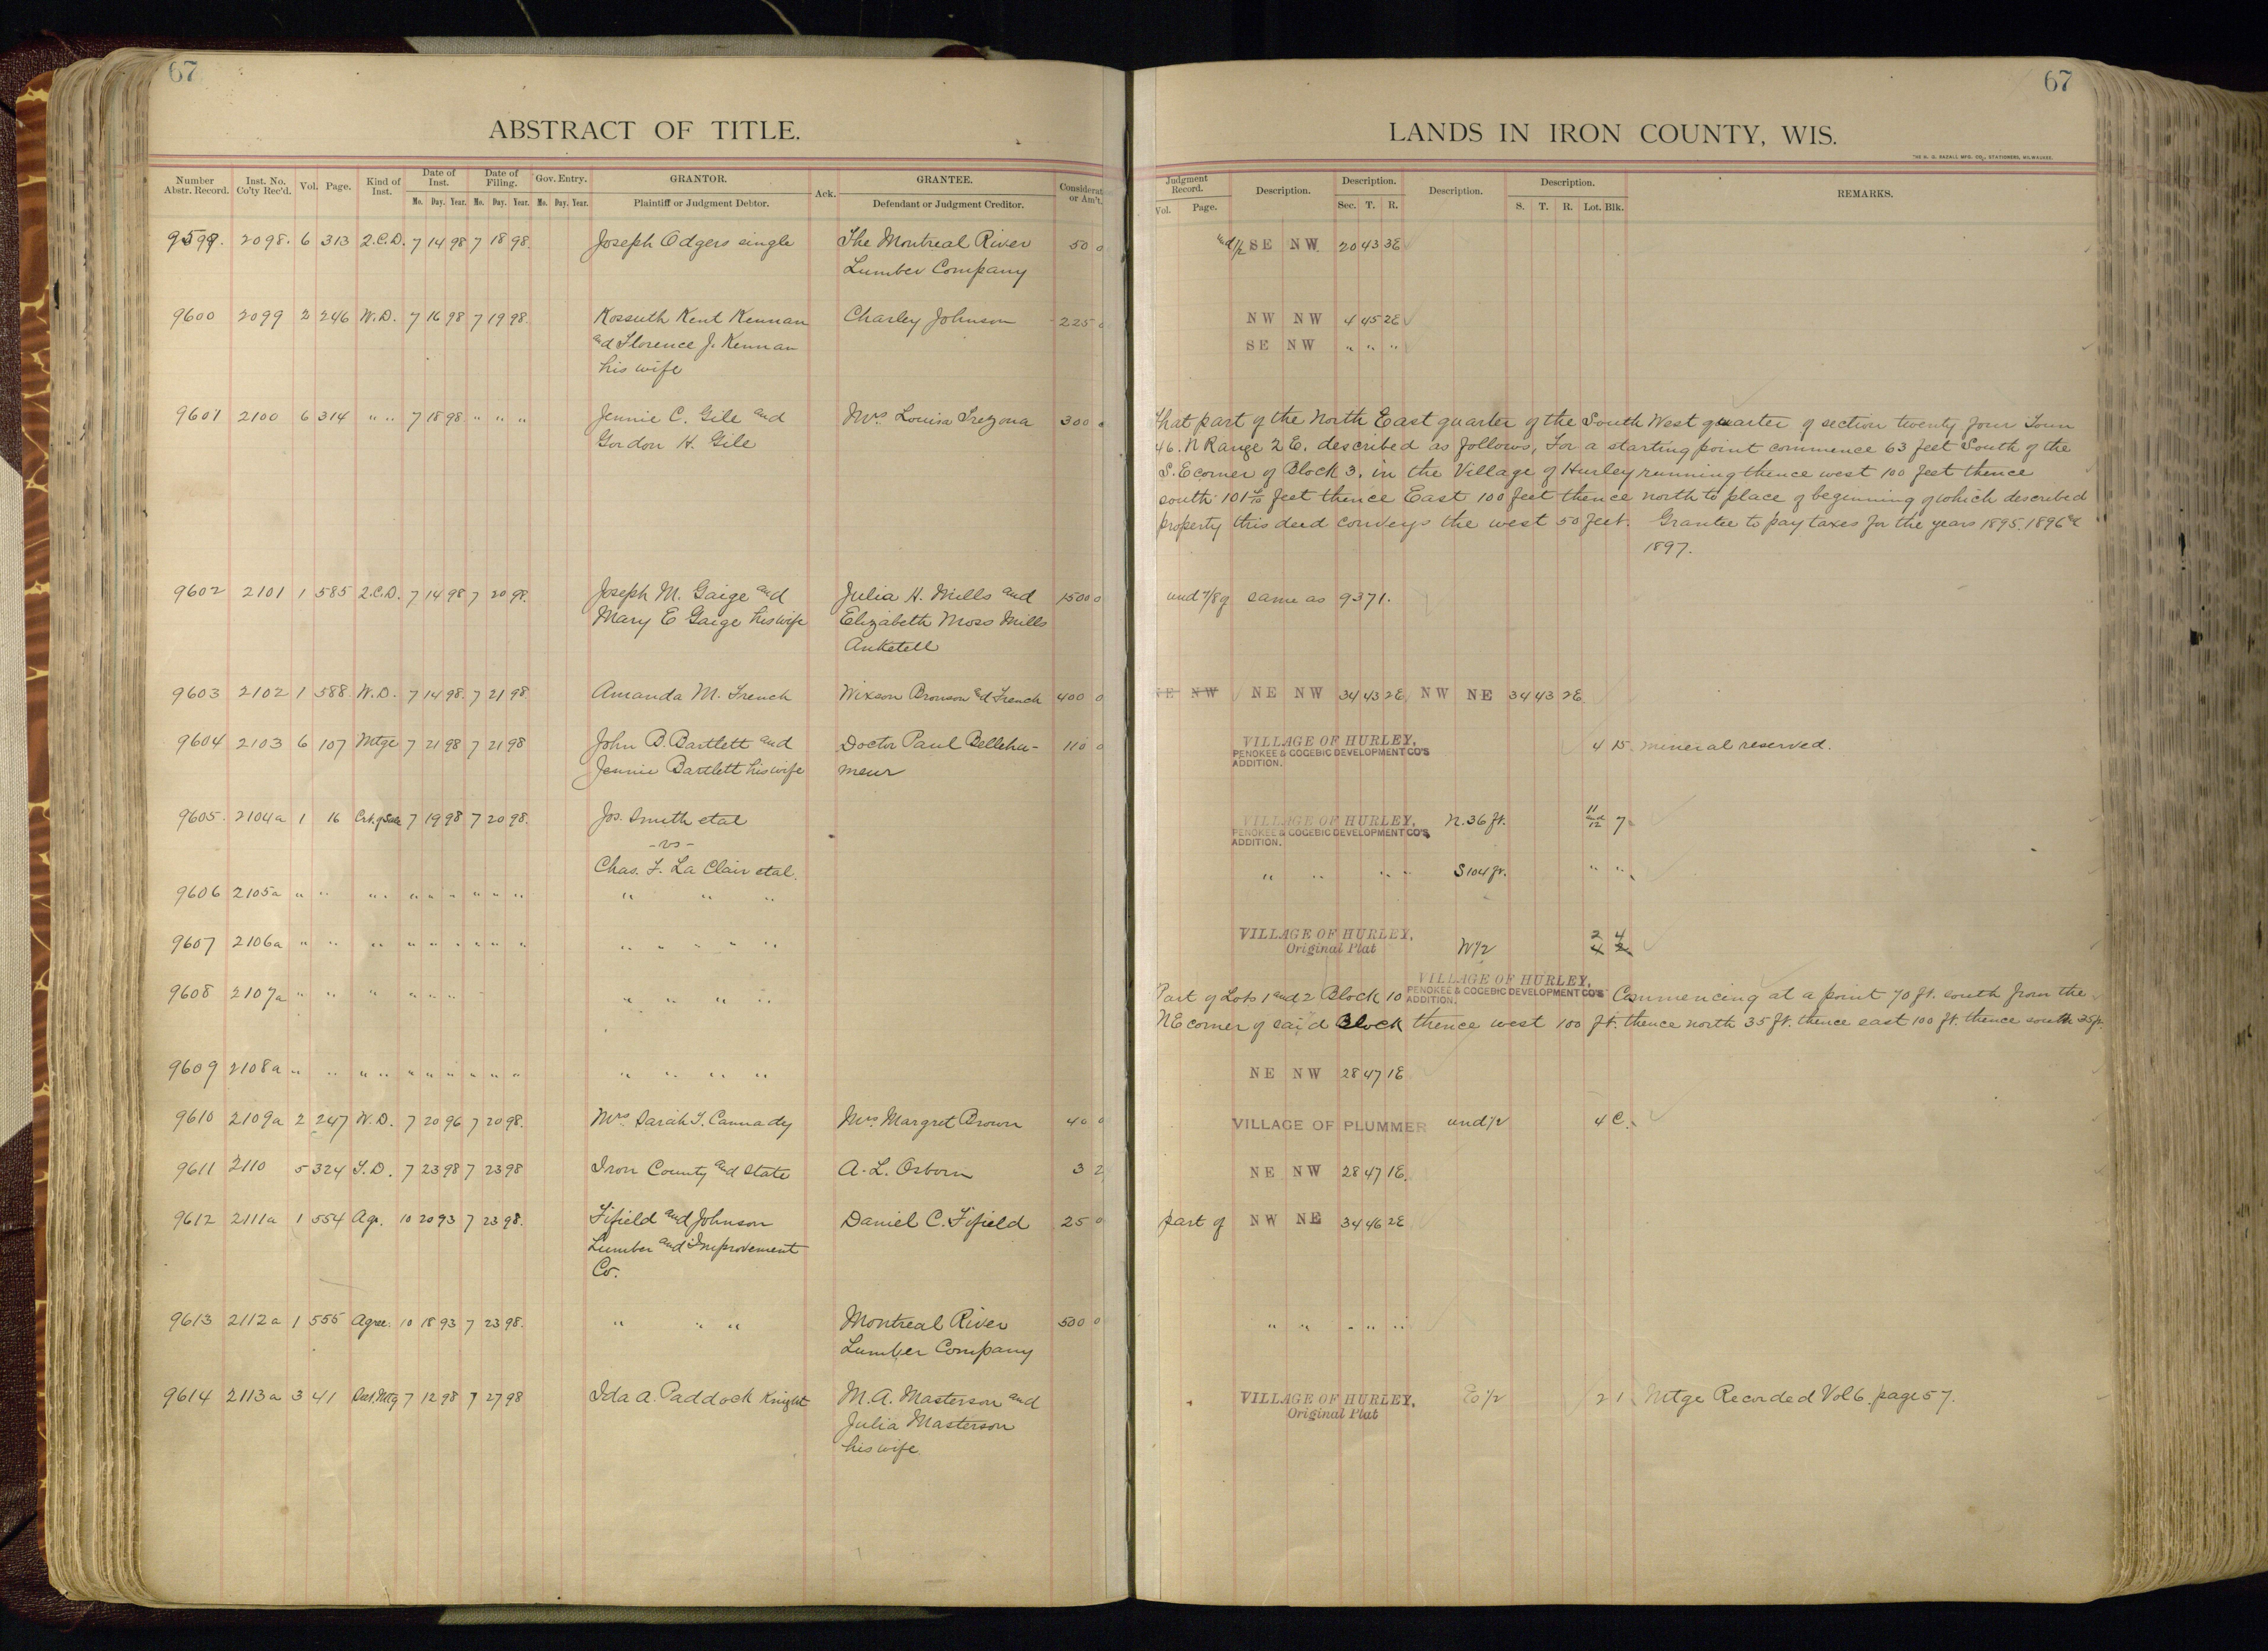 67
ABSTRACT OF TITLE.
Number Abstr. Record. Inst. No. Co'ty Rec'd. Vol. Page. Kind of Inst. Date of Inst. Date of Filing. Gov. Entry. GRANTOR. Ack. GRANTEE. Considerat or Am't.
Mo. Day. Year. Mo. Day. Year. Mo. Day. Year. Plaintiff or Judgment Debtor. Defendant or Judgment Creditor.
9599. 2098. 6 313 Q.C.D. 7 14 98 7 18 98. Joseph Odgers single The Montreal River 50 0
Lumber Company
9600 2099 2 246 W.D. 7 16 98 7 19 98. Kossuth Kent Kennan Charley Johnson 225 0
and Florence J. Kennan
his wife
9601 2100 6 314 " " 7 18 98 " " " Jennie C. Gile and Mrs. Louisa Trezona 300 0
Gordon H. Gile
9602 2101 1 585 Q.C.D. 7 14 98 7 20 98. Joseph M. Gaige and Julia H. Mills and 1500 0
Mary E Gaige his wife Elizabeth Moss Mills
Anketell
9603 2102 1 588 W.D. 7 14 98. 7 21 98 Amanda M. French Wixson Bronson and French 400 0
9604 2103 6 107 Mtge 7 21 98 7 21 98 John B. Bartlett and Doctor Paul Bellehu- 110 0
Jennie Bartlett his wife meur
9605. 2104a 1 16 Crt. of Sale 7 19 98 7 20 98. Jos. Smith etal
- vs -
Chas. F. La Clair etal.
9606 2105a " " " " " " " " " " " " "
9607 2106a " " " " " " " " " " " " " "
9608 2107a " " " " " " " " " "
9609 2108a " " " " " " " " " " " " " "
9610 2109a 2 247 W.D. 7 20 96 7 20 98. Mrs. Sarah T. Cannady Mrs. Margret Brown 40 0
9611 2110 5 324 T.D. 7 23 98 7 23 98 Iron County and State A. L. Osborn 3 2
9612 2111a 1 554 Ag. 10 20 93 7 23 98. Fifield and Johnson Daniel C. Fifield 25 0
Lumber and Improvement
Co.
9613 2112a 1 555 Agree. 10 18 93 7 23 98. " " " Montreal River 500 0
Lumber Company
9614 2113a 3 41 7 12 98 7 27 98 Ida A. Paddock Knight M. A. Masterson and
Julia Masterson
his wife
67
LANDS IN IRON COUNTY, WIS.
THE H. G. RAZALL MFG. CO., STATIONERS, MILWAUKEE.
Judgment Record. Description. Description. Description. Description. REMARKS.
Vol. Page. Sec. T. R. S. T. R. Lot. Blk.
und 1/2 SE NW 20 43 3E
NW NW 4 45 2E
SE NW " " "
That part of the North East quarter of the South West quarter of section twenty four Town
46. N Range 2 E. described as follows, For a starting point commence 63 feet South of the
S. E corner of Block 3. in the Village of Hurley running thence west 100 feet thence
south 101 feet thence East 100 feet thence north to place of beginning of which described
property this deed conveys the west 50 feet. Grantee to pay taxes for the years 1895. 1896 &
1897.
und 7/8 of same as 9371.
NE NW NE NW 34 43 2E NW NE 34 43 2E
VILLAGE OF HURLEY, 4 15 mineral reserved.
PENOKEE & GOGEBIC DEVELOPMENT CO'S
ADDITION.
VILLAGE OF HURLEY, N. 36 ft. 11 and 12 7
PENOKEE & GOGEBIC DEVELOPMENT CO'S
ADDITION.
" " " " S 104 ft. " "
VILLAGE OF HURLEY, 2 4
Original Plat W 1/2 4 2
VILLAGE OF HURLEY,
Part of Lots 1 and 2 Block 10 PENOKEE & GOGEBIC DEVELOPMENT CO'S ADDITION. Commencing at a point 70 ft. south from the
NE corner of said Block thence west 100 ft. thence north 35 ft. thence east 100 ft. thence south 35 ft.
NE NW 28 47 1E
VILLAGE OF PLUMMER und 1/2 4 C.
NE NW 28 47 1E.
part of NW NE 34 46 2E
" " " " "
VILLAGE OF HURLEY, E 1/2 2 1 Mtge Recorded Vol 6. page 57.
Original Plat